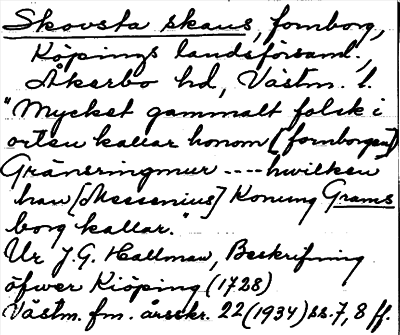 Skovsta skans, fornborg,
Köpings landsförsaml.,
Åkerbo hd, Västm. l.
"Mycket gammalt folck i
orten kallar honom [fornborgen]
Gränsringmur ---- hwilken
han [Messenius] Konung Grams
borg kallar."
Ur J.G. Hallman, Beskrifning
öfwer Kiöping (1728)
Västm. fm. årsskr. 22 (1934) ss. 7, 8 ff.